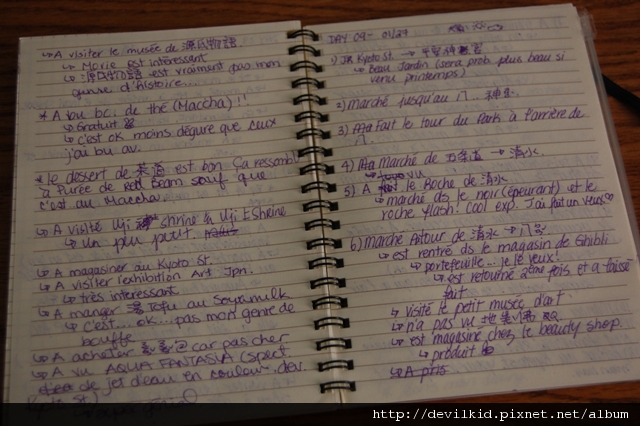 ↳ A visiter le musée de 源氏物語.
↳ Movie est intéressant
↳ 源氏物語 est vraiment pas mon
genre d'histoire...
* A bu bc. de thé (Maccha) !!
↳ Gratuit
↳ c'est ok moins dégure que ceux
j'ai bu av.
* le dessert de est bon Ça ressembl
à Purée de Red Bean sauf que
c'est au Maccha
↳ A visité Uji shrine & Uji Shrine
↳ Un peu petit
↳ A magasiner au Kyoto St.
↳ A visiter l'exhibition Art Jpn.
↳ très intéressant
↳ A manger Tofu au Soyamilk
↳ c'est... ok... pas mon genre de
bouffe
↳ A acheter car pas cher
↳ A vu AQUA FANTASIA (spect.
de jet d'eau en couleur dev.
Kyoto St.)
DAY 09 - 01/29
1) JR Kyoto St → 平安神宮
↳ Beau Jardin (sera prob. plus beau si
venu printemps)
2) Marché jusqu'au 八...神社.
3) Fait le tour du Park à l'arrière de
八.
4) Marché de 五条道 → 清水
vu
5) A le Roche de 清水
↳ marché ds le noir (épeurant) et le
roche flash! Cool exp. J'ai fait un vœux
6) Marche Autour de 清水 →
↳ est rentré ds le magasin de Ghibli
↳ portefeuille... je le veux!
↳ est retourné 2ème fois et a laissé
fait
↳ visité le petit musée d'art
↳ n'a pas vu
↳ est magasiné chez le beauty shop.
↳ produit
↳ A pris
http://devilkid.pixnet.net/album